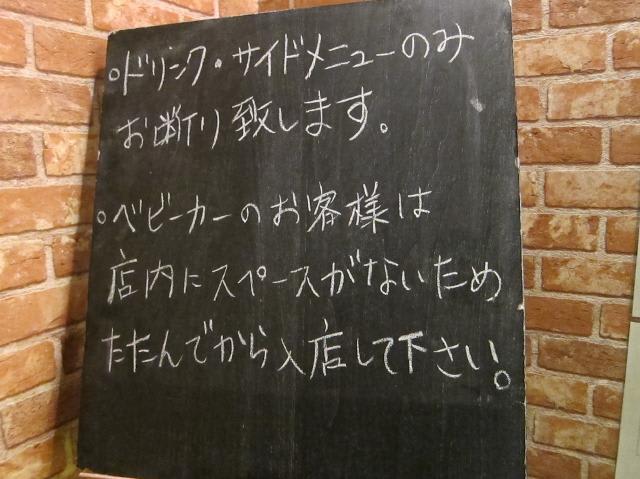 ○ドリンク・サイドメニューのみ
お断り致します。
○ベビーカーのお客様は
店内にスペースがないため
たたんでから入店して下さい。